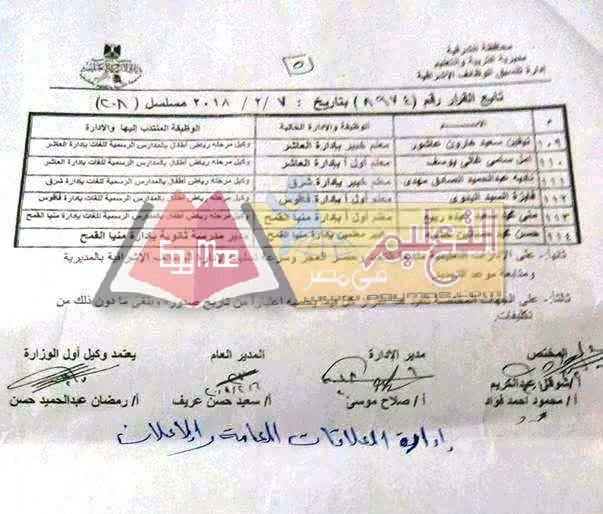 محافظة الشرقية
مديرية التربية والتعليم
إدارة تنسيق الوظائف الاشرافية
(٥)
تابع القرار رقم (٨٩٧٤) بتاريخ : ٢/٧ / ٢٠١٨ مسلسل (٢٠٨)
م الاســـــم الوظيفة والإدارة الحالية الوظيفة المنتدب إليها والإدارة
١٠٩ نيفين سعيد هارون عاشور معلم خبير بإدارة العاشر وكيل مرحلة رياض أطفال بالمدارس الرسمية للغات بإدارة العاشر
١١٠ امل سامى غالى يوسف معلم أول أ بإدارة العاشر وكيل مرحلة رياض أطفال بالمدارس الرسمية للغات بإدارة العاشر
١١١ ناديه عبدالحميد الصادق مهدى معلم خبير بإدارة شرق وكيل مرحلة رياض أطفال بالمدارس الرسمية للغات بإدارة شرق
١١٢ فايزة السيد البدوى معلم أول أ بإدارة فاقوس وكيل مرحلة رياض أطفال بالمدارس الرسمية للغات بإدارة فاقوس
١١٣ منى محمد عبده ربيع معلم أول أ بإدارة منيا القمح وكيل مرحلة رياض أطفال بالمدارس الرسمية للغات بإدارة منيا القمح
١١٤ حسن بإدارة منيا القمح مدير مدرسة ثانوية بإدارة منيا القمح
ثانيا:- على الإدارات التعليمية حصر العجز وسرعة إدارة الوظائف الإشرافية بالمديرية
ومتابعة موعد التجديد
التعليم
في مصر
EgyMe
www.egymoe.com
ثالثاً:- على الجهات المختصة اعتباراً من تاريخ صدوره ويلغى ما دون ذلك من
تكليفات.
المختص مدير الإدارة المدير العام يعتمد وكيل أول الوزارة
أ/شوقى عبدالكريم
أ/ محمود أحمد فؤاد أ/ صلاح موسى أ/ سعيد حسن عريف أ/ رمضان عبدالحميد حسن
إدارة العلاقات العامة والإعلان